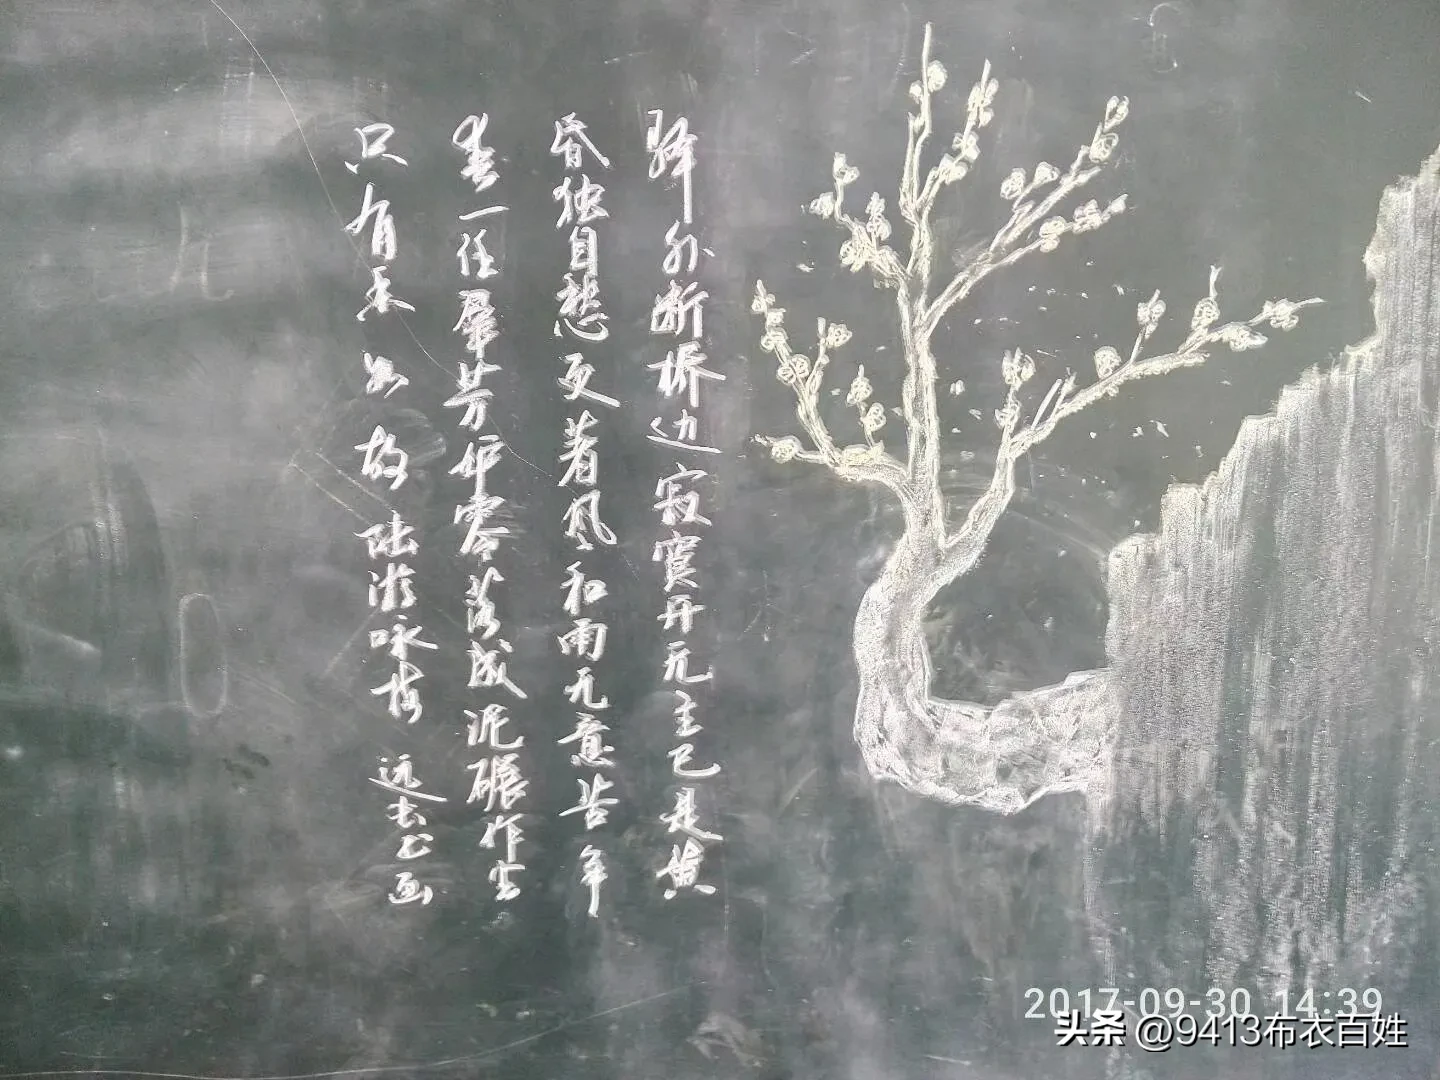 驿外断桥边寂寞开无主已是黄
昏独自愁更着风和雨无意苦争
春一任羣芳妒零落成泥碾作尘
只有香如故 陆游咏梅 远去书画
2017-09-30 14:39
头条 @9413布衣百姓